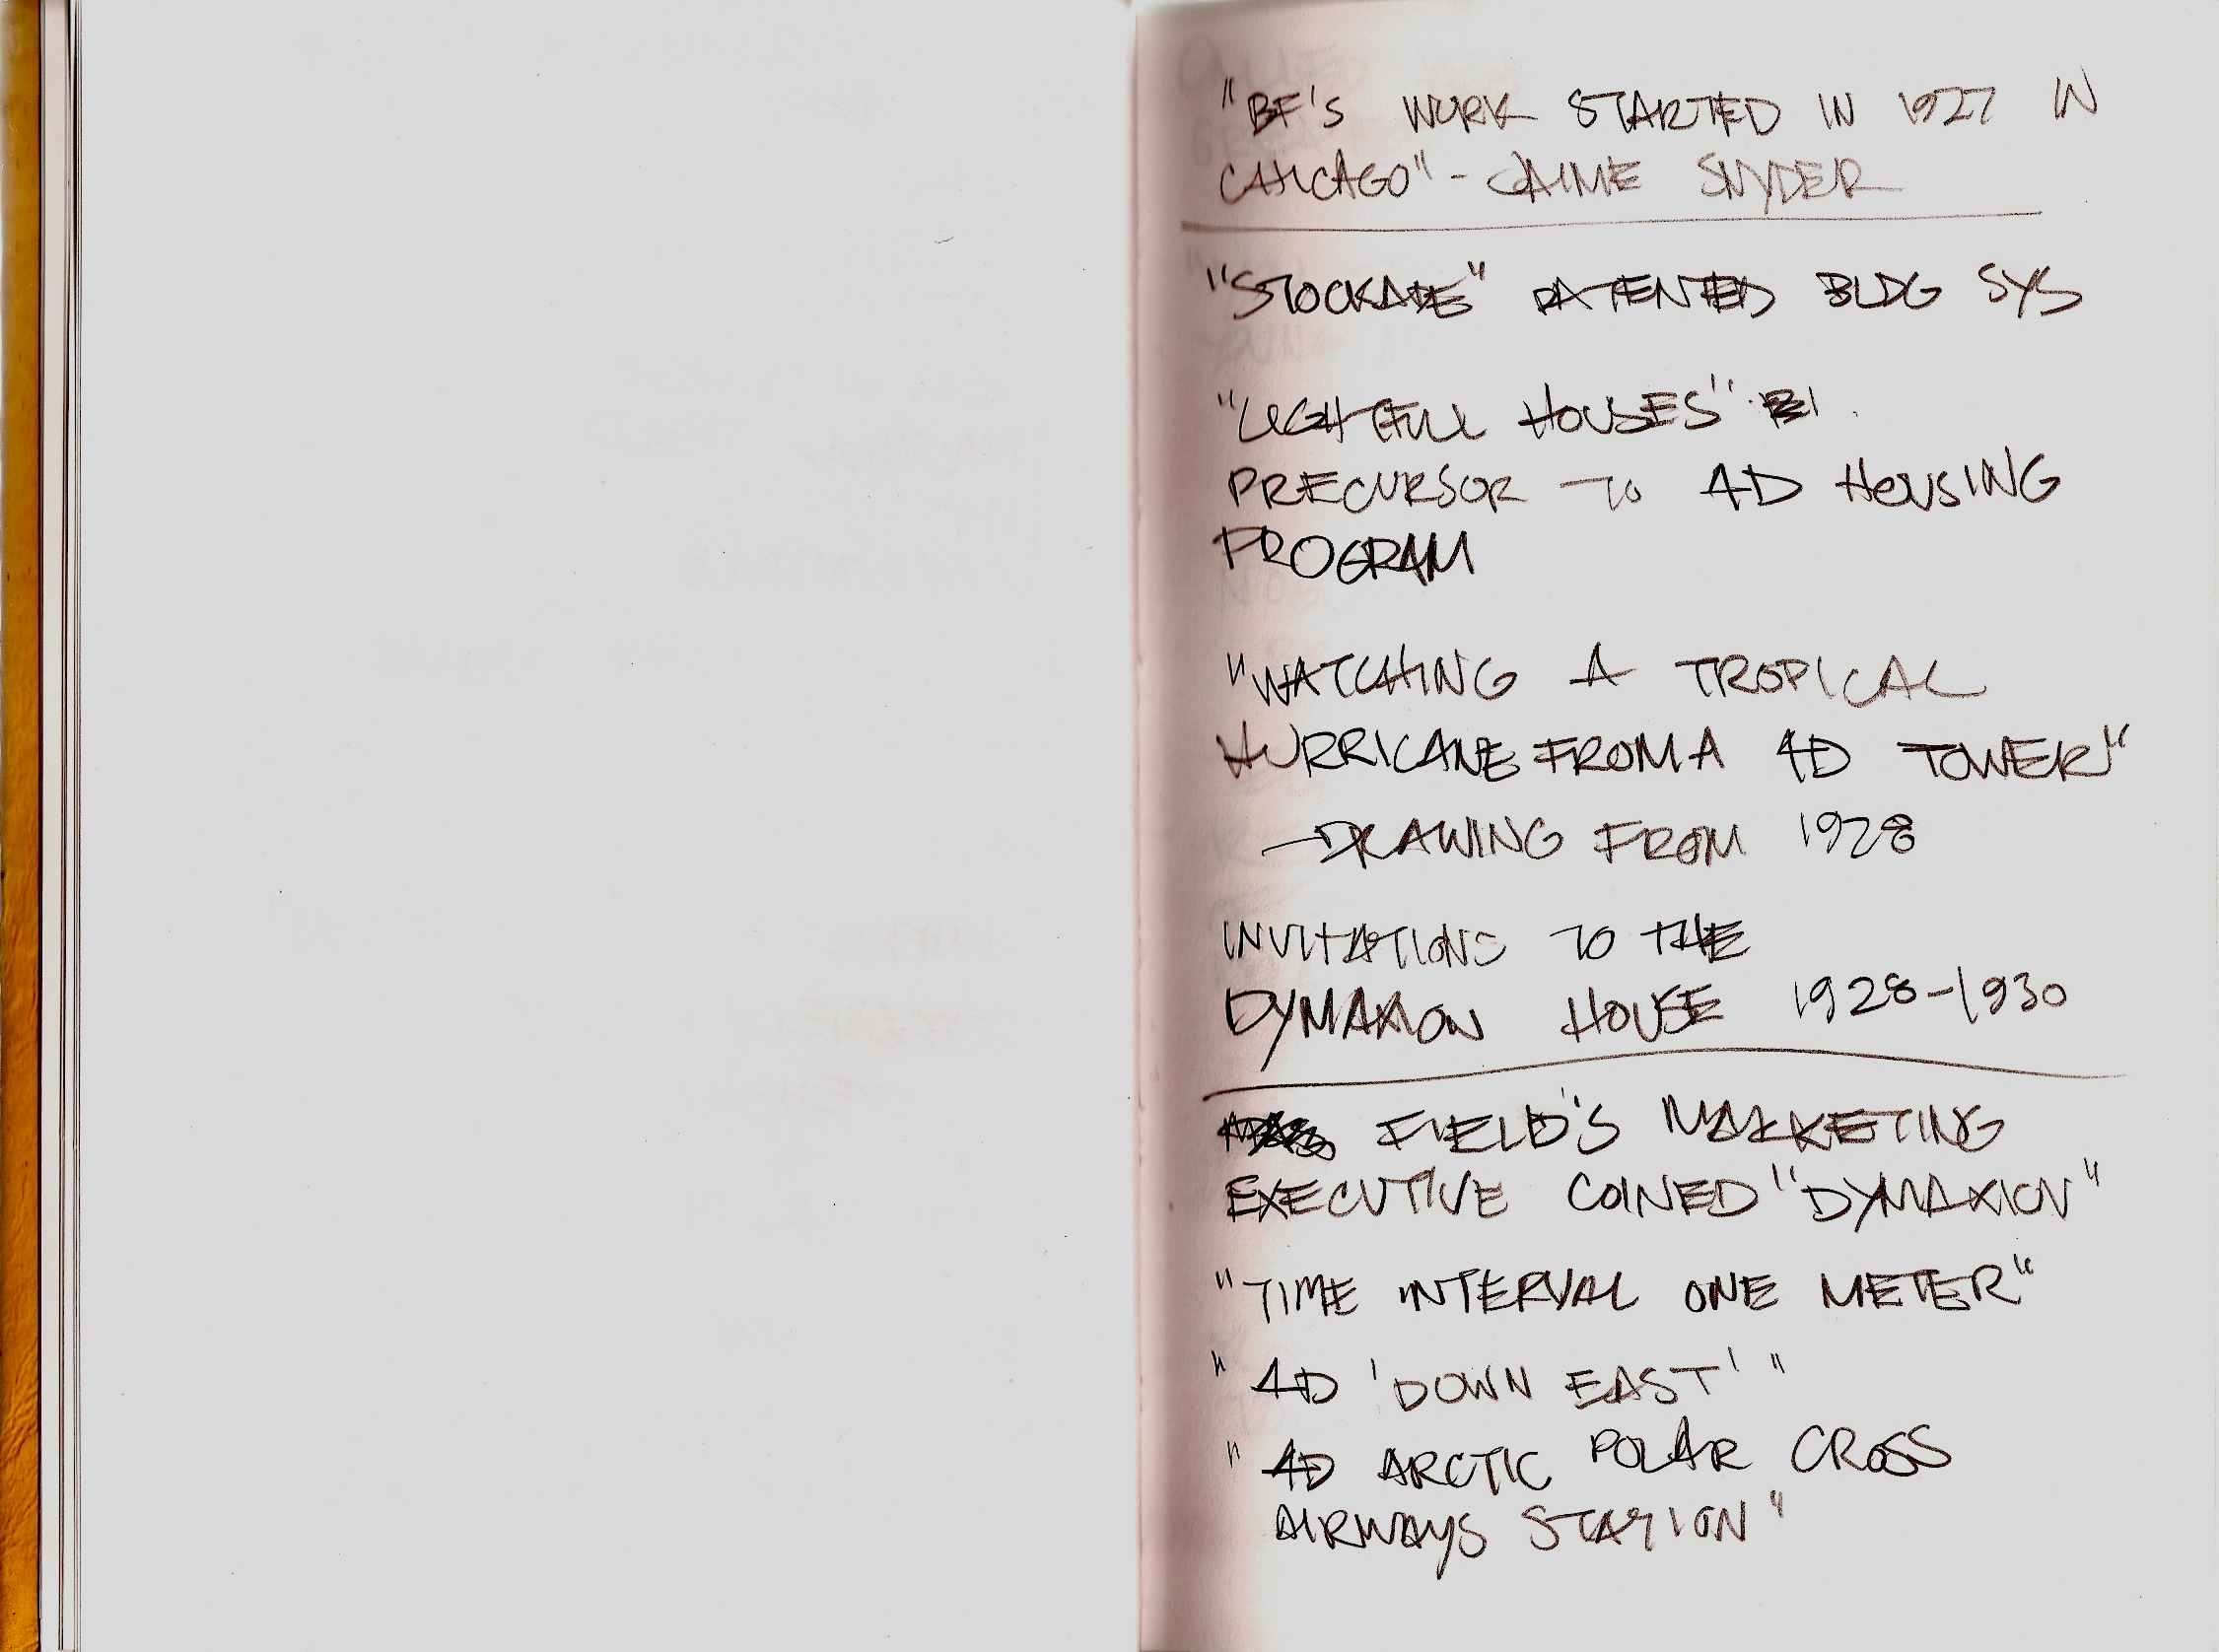 "BF'S WORK STARTED IN 1927 IN
CHICAGO" - JAIME SNYDER
"STOCKADE" PATENTED BLDG SYS
"LIGHTFUL HOUSES"
PRECURSOR TO 4D HOUSING
PROGRAM
"WATCHING A TROPICAL
HURRICANE FROM A 4D TOWER"
→DRAWING FROM 1928
INVITATIONS TO THE
DYMAXION HOUSE 1928-1930
FIELD'S MARKETING
EXECUTIVE COINED "DYMAXION"
"TIME INTERVAL ONE METER"
"4D 'DOWN EAST'"
"4D ARCTIC POLAR CROSS
AIRWAYS STATION"